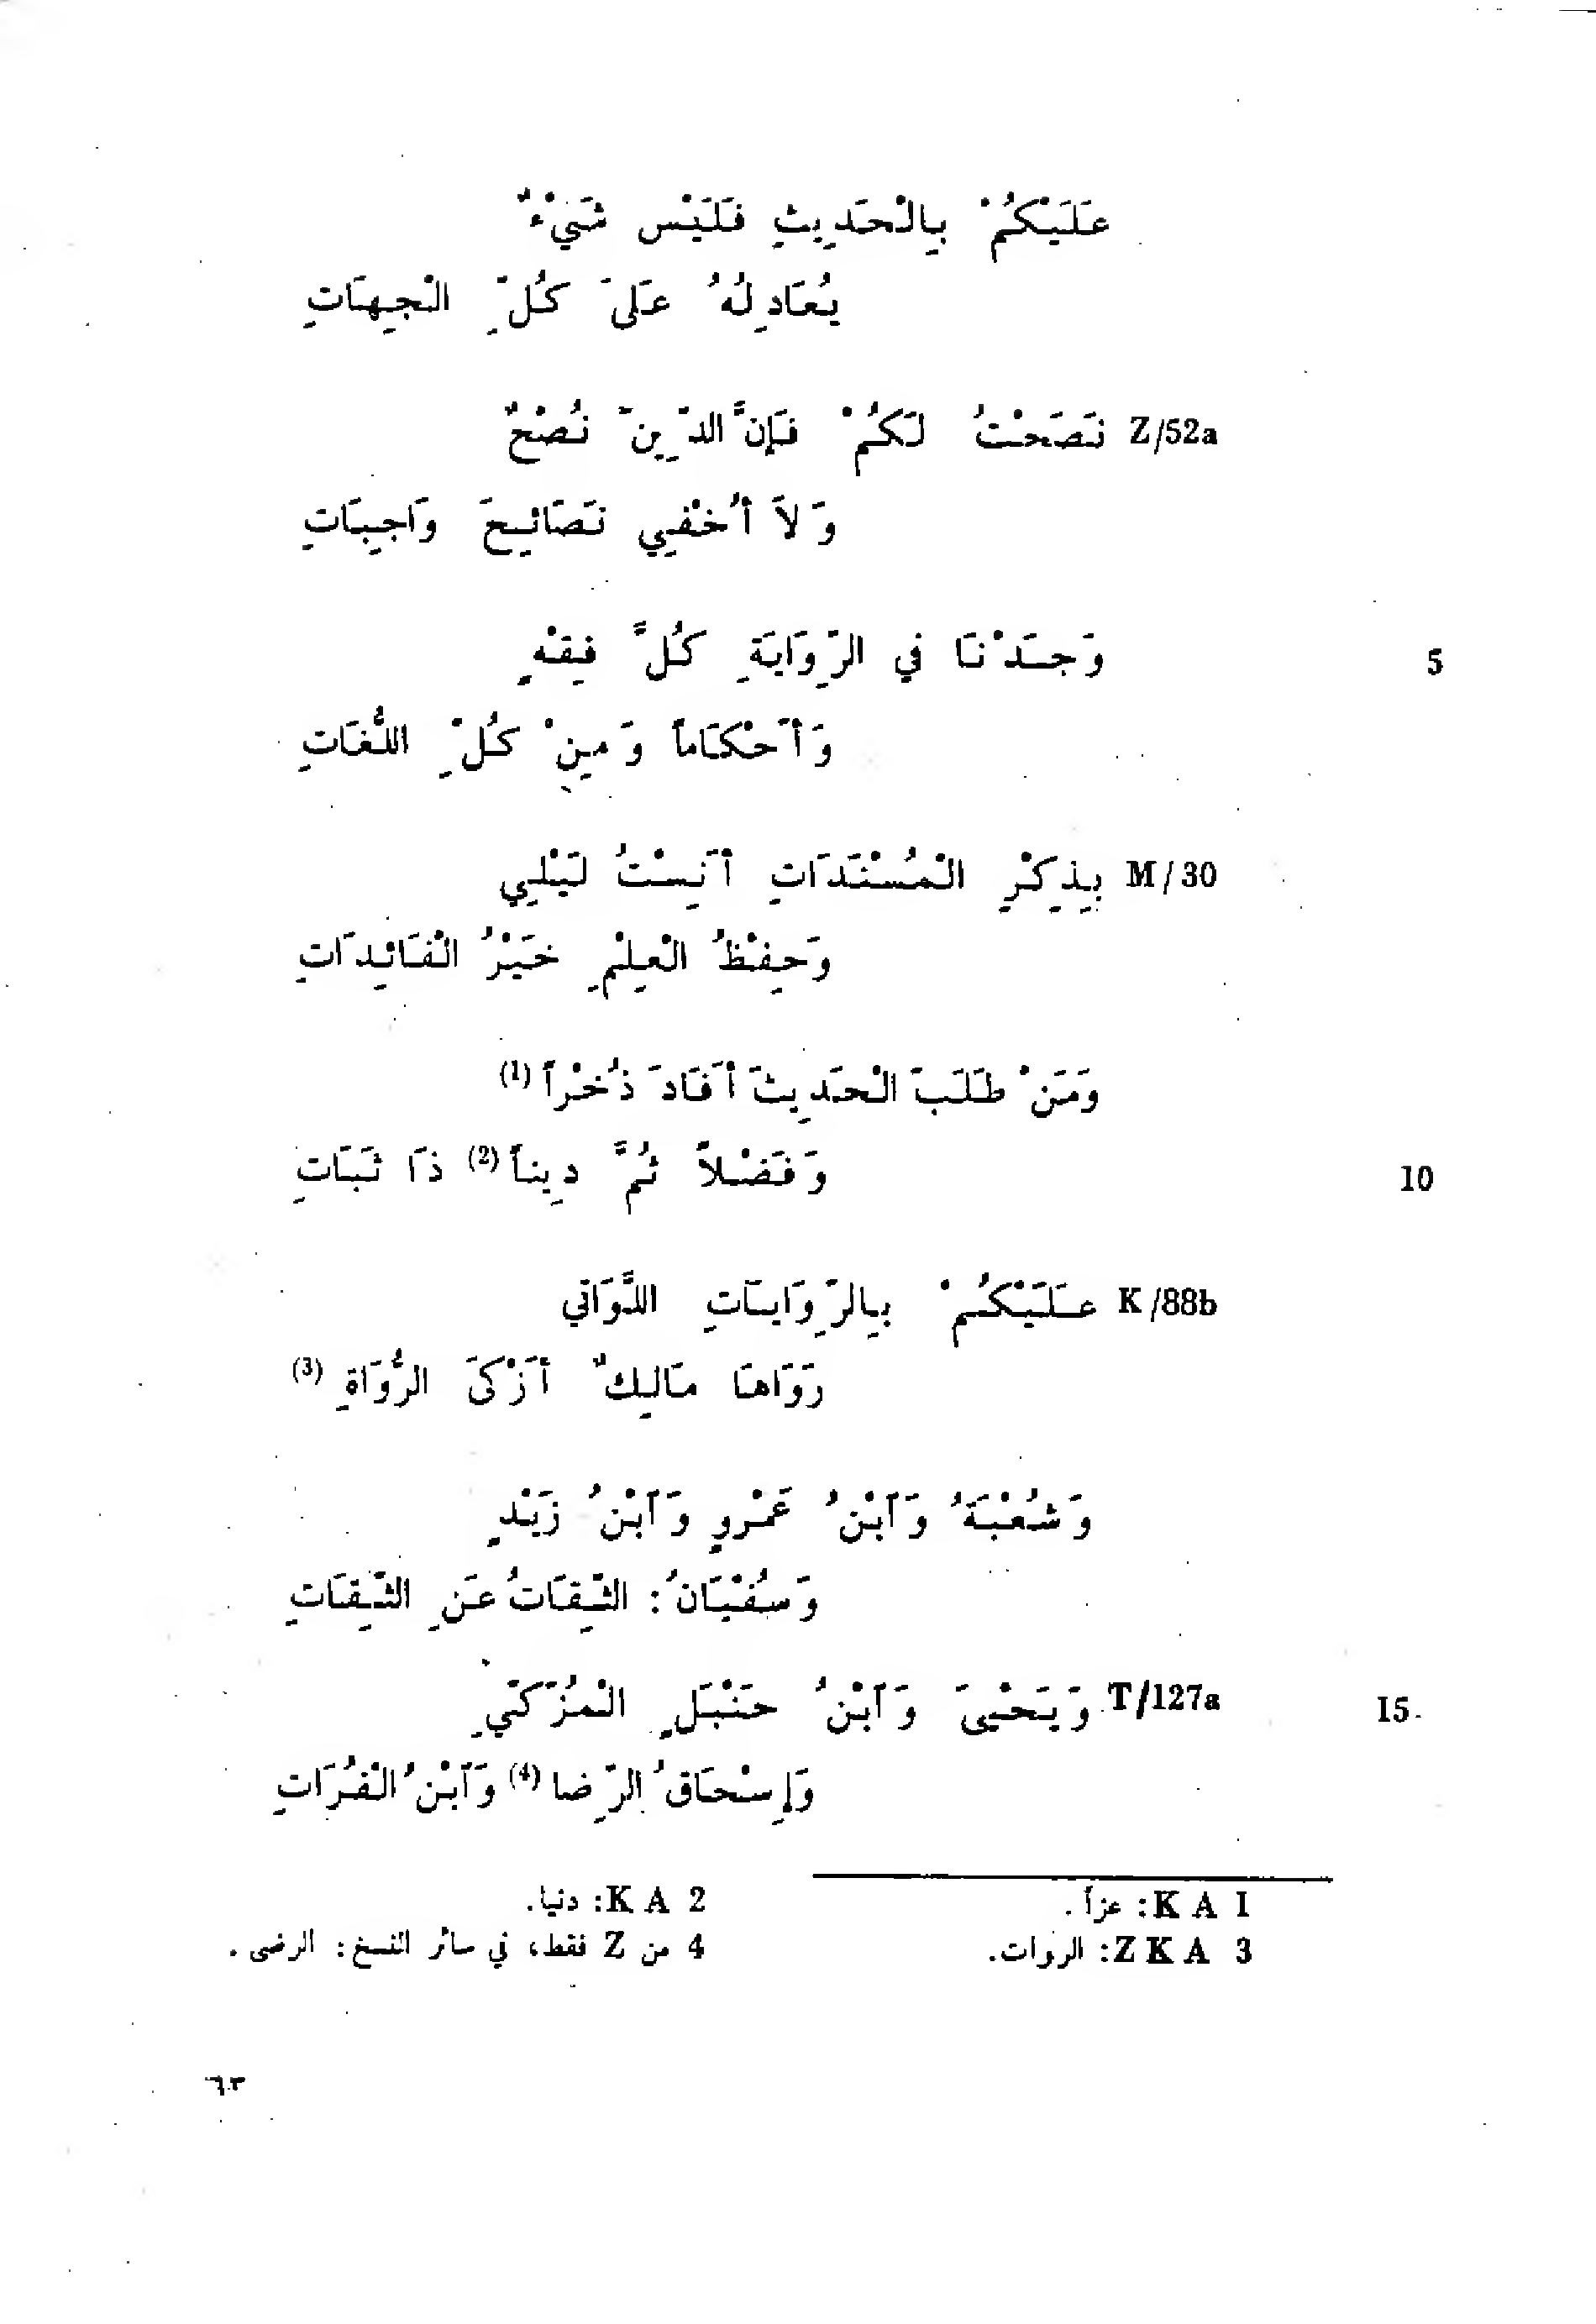 عَلَيْكُمْ بِالْحَدِيثِ فَلَيْس شَيْءٌ
يُعَادِلُهُ عَلَى كُلِّ الْجِهَاتِ
Z/52a نَصَحْتُ لَكُمْ فَإِنَّ الدِّينَ نُصْحٌ
وَلاَ أُخْفِي نَصَائِحَ وَاجِبَاتِ
5 وَجَدْنَا في الرِّوَايَةِ كُلَّ فِقْهٍ
وَأَحْكَاماً وَمِنْ كُلِّ اللُّغَاتِ
M/30 بِذِكْرِ الْمُسْنَدَاتِ أَنِسْتُ لَيْلِي
وَحِفْظُ الْعِلْمِ خَيْرُ الْفَائِدَاتِ
وَمَنْ طَلَبَ الْحَدِيثَ أَفَادَ ذُخْراً (1)
10 وَفَضْلاً ثُمَّ دِيناً (2) ذَا ثَبَاتِ
K/88b عَلَيْكُمْ بِالرِّوَايَاتِ اللَّوَاتي
رَوَاهَا مَالِكٌ أَزْكَى الرُّوَاةِ (3)
وَشُعْبَةُ وَآبْنُ عَمْرٍو وَآبْنُ زَيْدٍ
وَسُفْيَانُ: الثِّقَاتُ عَنِ الثِّقَاتِ
15 T/127a وَيَحْيَى وَآبْنُ حَنْبَلٍ الْمُزَكِّي
وَإِسْحَاقُ الرِّضا (4) وَآبْنُ الْفُرَاتِ
1 K A: عزاً.
2 K A: دنيا.
3 Z K A: الروات.
4 من Z فقط، في سائر النسخ: الرضى.
٦٣